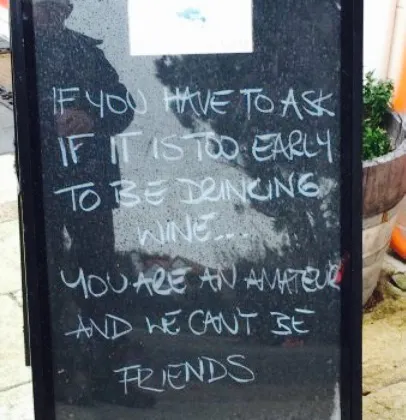 IF YOU HAVE TO ASK
IF IT IS TOO EARLY
TO BE DRINKING
WINE...
YOU ARE AN AMATEUR
AND WE CANT BE
FRIENDS